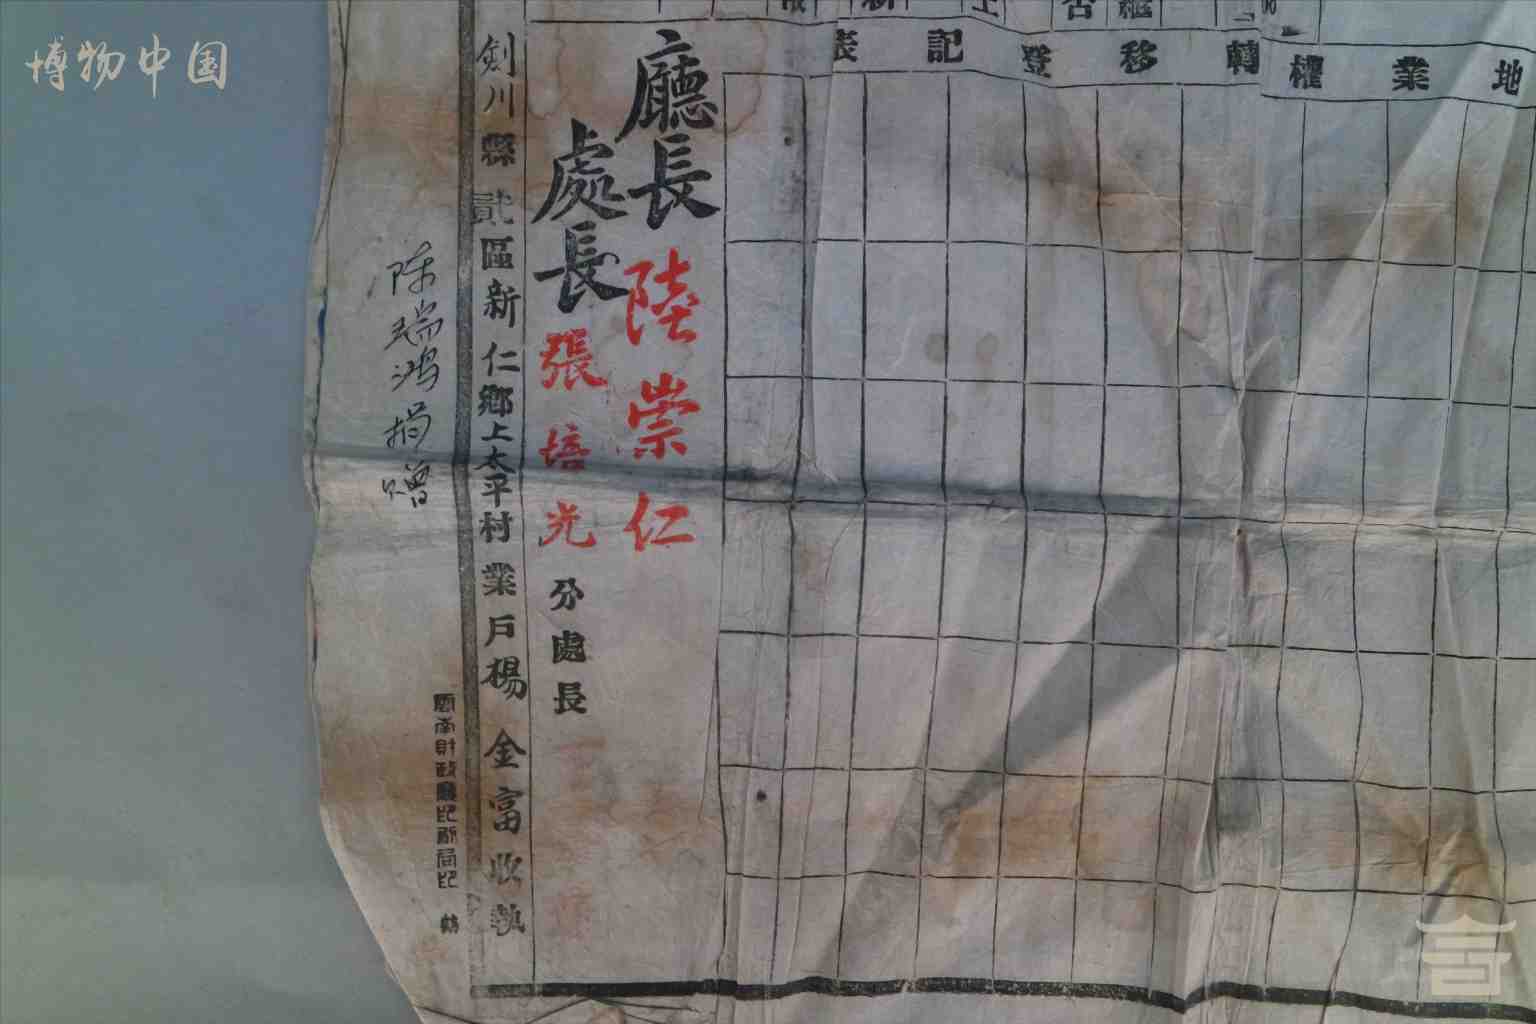 博物中国
地業權轉移登記表
廳長 陸崇仁
處長 張培光 分處長
劍川縣貳區新仁鄉上太平村業戶楊金富收執
雲南財政廳印刷局印
陈瑞鸿捐赠